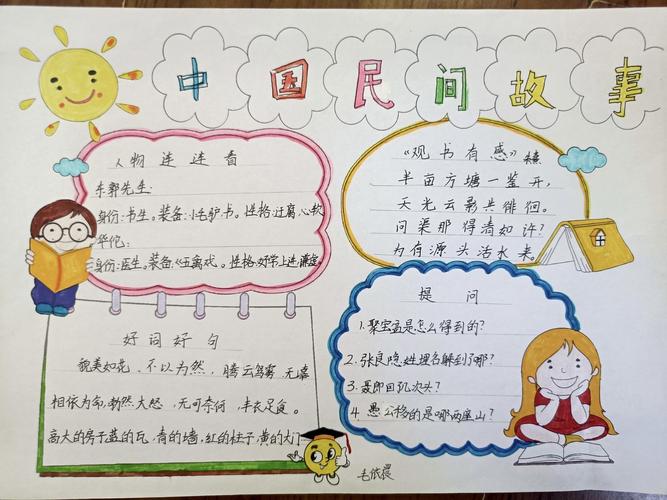 中国民间故事
人物连连看
东郭先生:
身份:书生。装备:小毛驴.书。性格:迂腐、心软
华佗:
身份:医生。装备:《五禽戏》。性格:好学上进.谦虚。
《观书有感》
半亩方塘一鉴开,
天光云影共徘徊。
问渠那得清如许?
为有源头活水来。
好词好句
貌美如花、不以为然,腾云驾雾
相依为命,勃然大怒、无可奈何,丰衣足食。
高大的房子蓝的瓦,青的墙,红的柱子,黄的大门
提问
1.聚宝盆是怎么得到的?
2.张良隐姓埋名躲到了哪?
3.聂郎回几次头?
4.愚公移的是哪两座山?
毛依晨